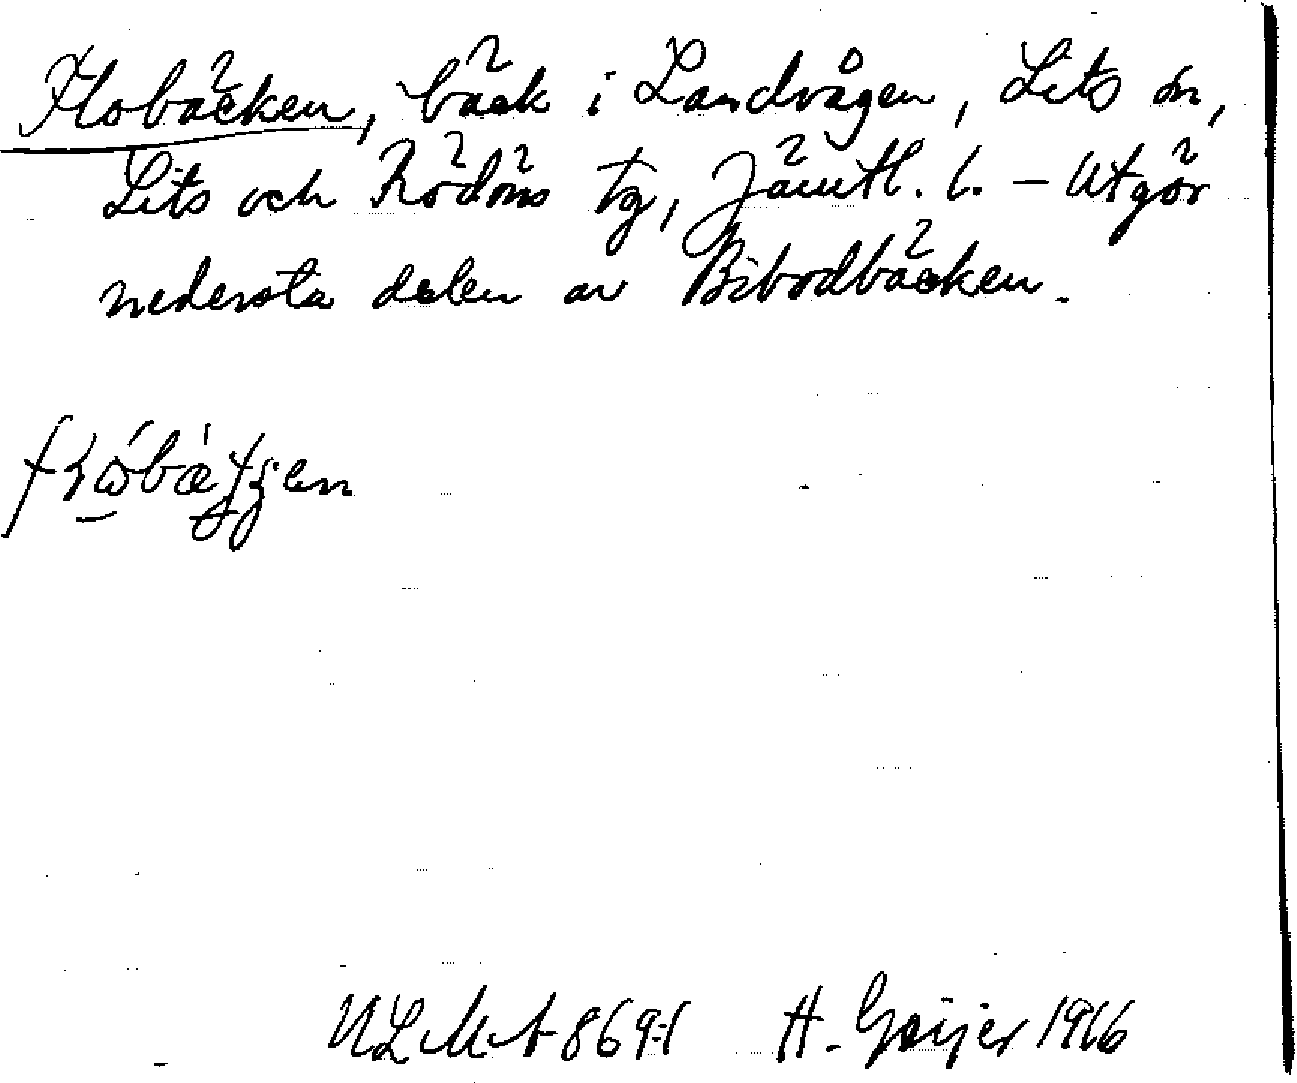 Flobäcken, bäck i Landvågen, Lits sn,
Lits och Rödöns tg, Jämtl. l. – Utgör
nedersta delen av Bibodbäcken.
H. Geijer 1916